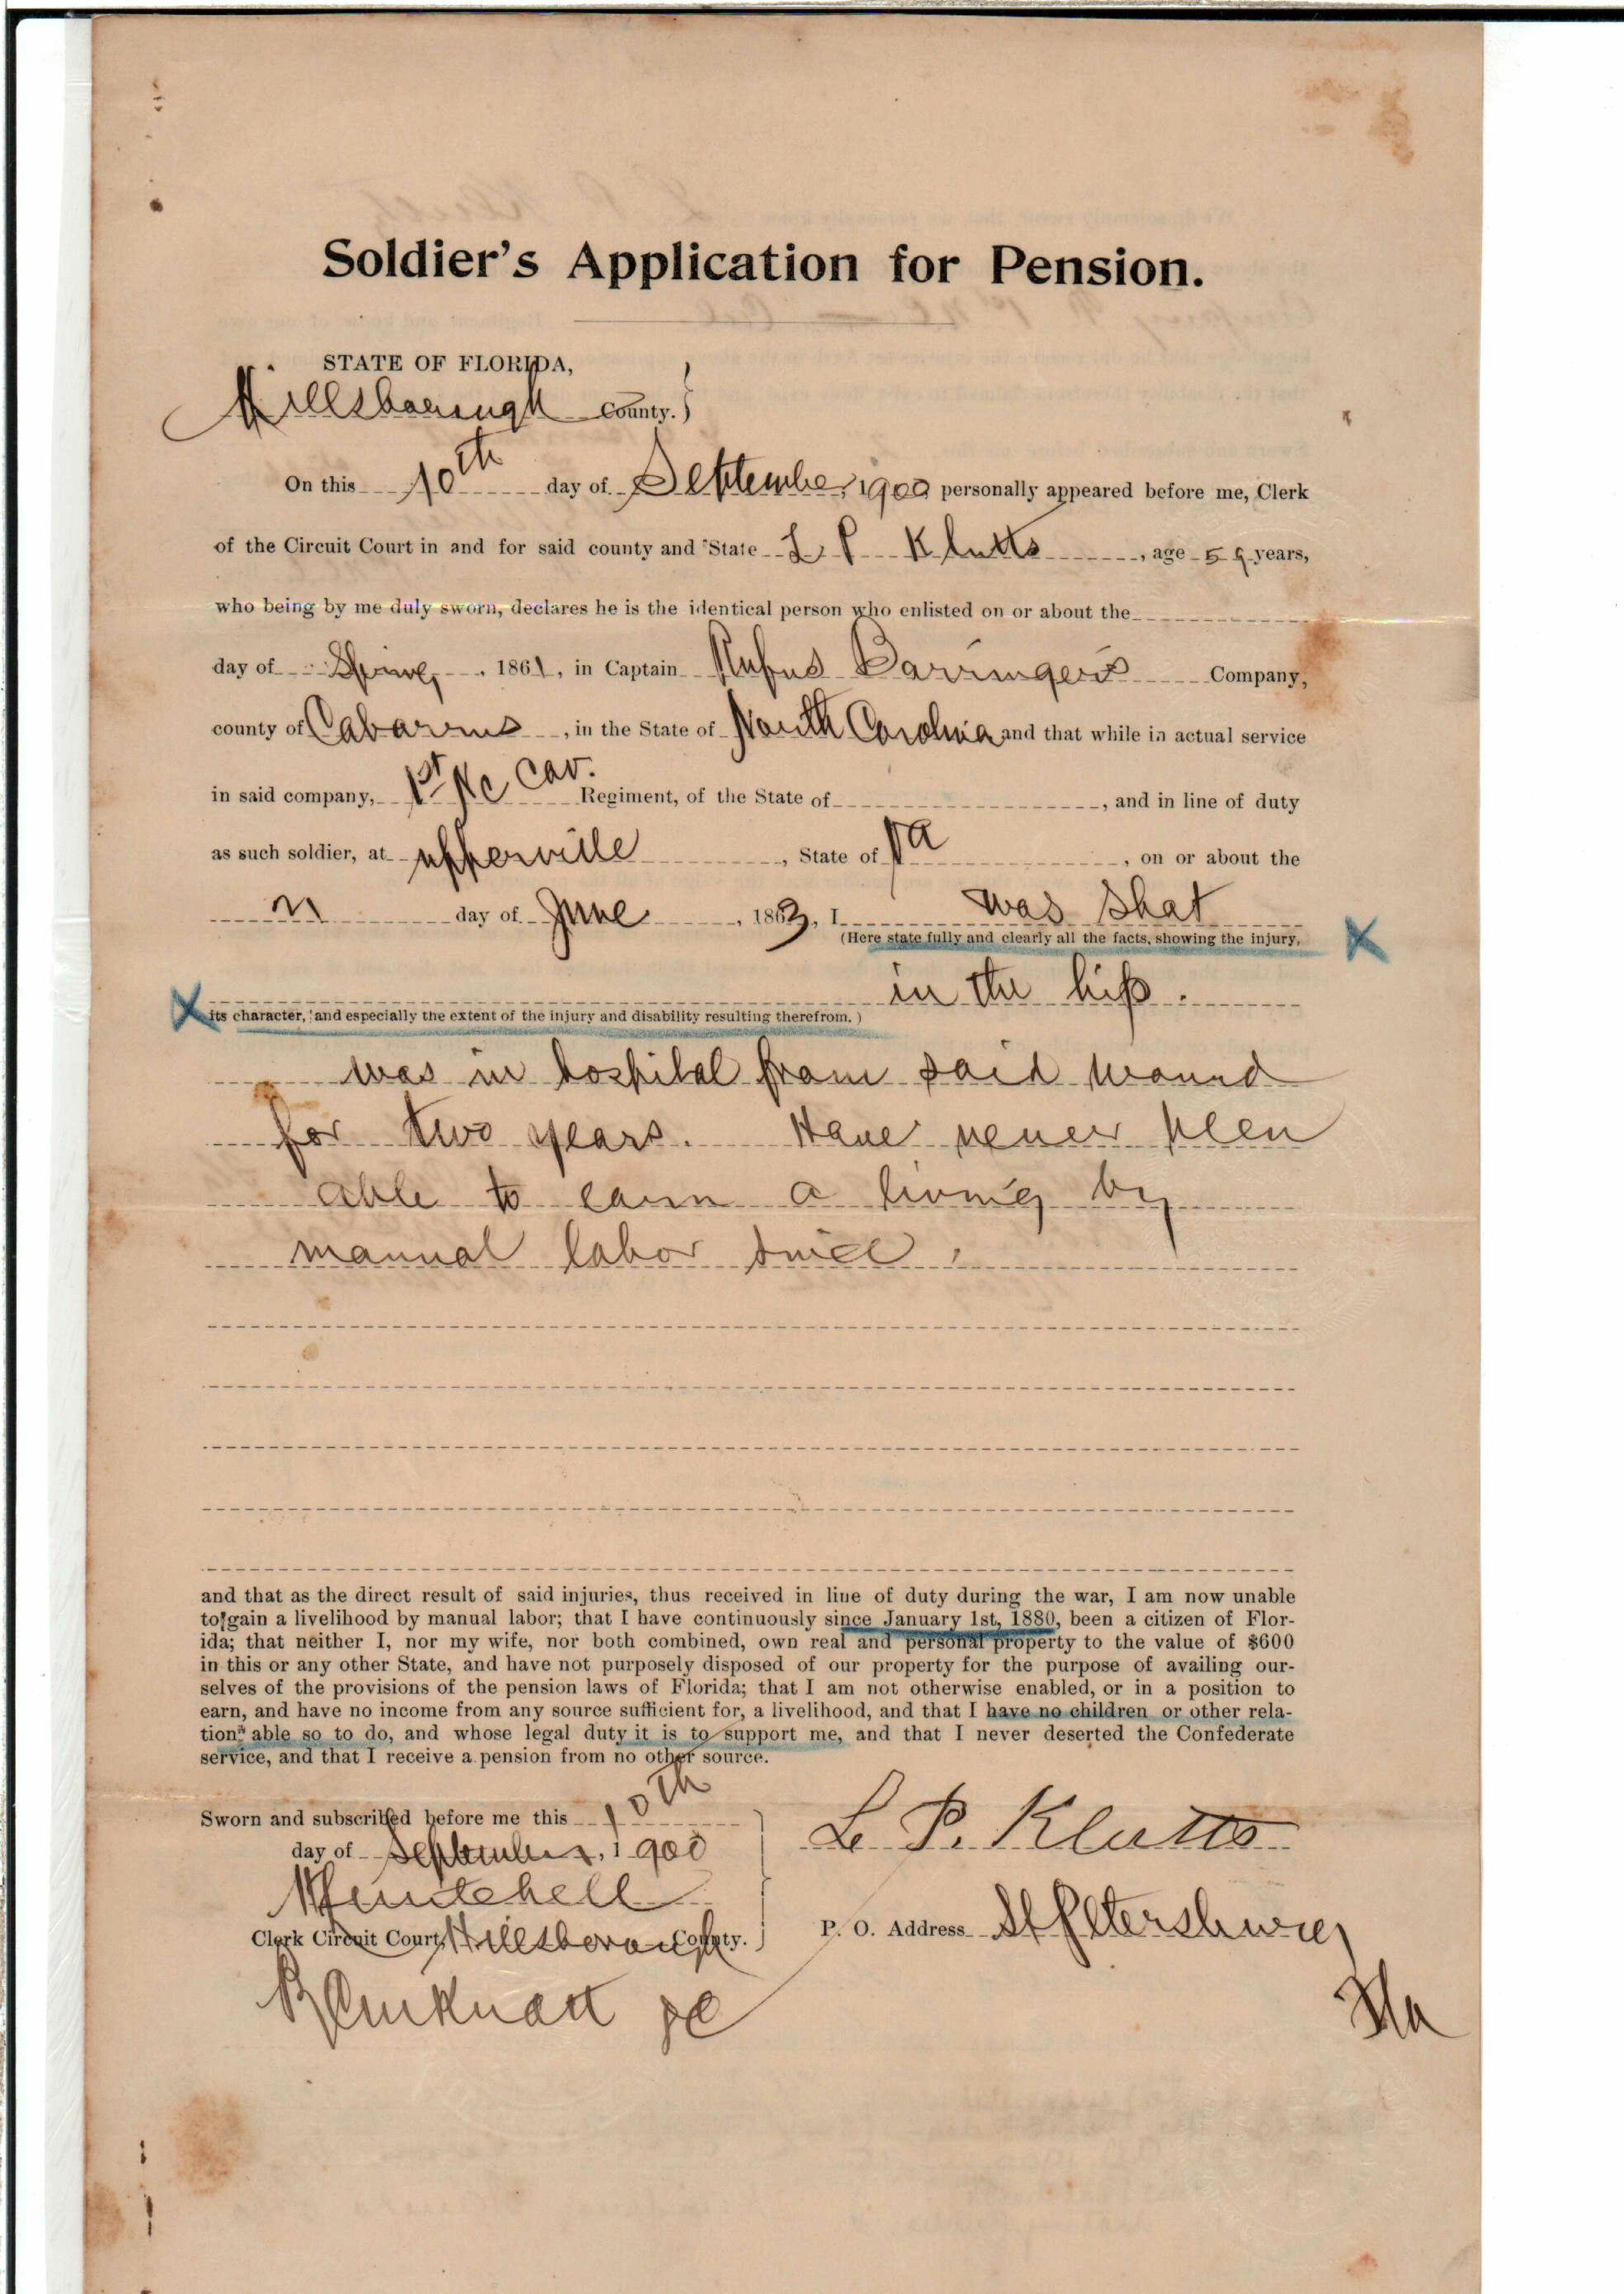 Soldier's Application for Pension.
STATE OF FLORIDA,
Hillsborough County.}
On this 10th day of September, 1900 personally appeared before me, Clerk
of the Circuit Court in and for said county and State L. P. Klutts, age 59 years,
who being by me duly sworn, declares he is the identical person who enlisted on or about the
day of Spring, 1861, in Captain Rufus Barringers Company,
county of Cabarrus, in the State of North Carolina and that while in actual service
in said company, 1st NC Cav. Regiment, of the State of , and in line of duty
as such soldier, at upperville, State of Va, on or about the
day of June, 1863, I was shot
(Here state fully and clearly all the facts, showing the injury,
in the hip.
its character, and especially the extent of the injury and disability resulting therefrom.)
was in hospital from said wound
for two years. Have never been
able to earn a living by
manual labor since.
and that as the direct result of said injuries, thus received in line of duty during the war, I am now unable
to gain a livelihood by manual labor; that I have continuously since January 1st, 1880, been a citizen of Flor-
ida; that neither I, nor my wife, nor both combined, own real and personal property to the value of $600
in this or any other State, and have not purposely disposed of our property for the purpose of availing our-
selves of the provisions of the pension laws of Florida; that I am not otherwise enabled, or in a position to
earn, and have no income from any source sufficient for, a livelihood, and that I have no children or other rela-
tions able so to do, and whose legal duty it is to support me, and that I never deserted the Confederate
service, and that I receive a pension from no other source.
Sworn and subscribed before me this 10th
day of September, 1900
L. P. Klutts
Clerk Circuit Court, Hillsborough County.
P. O. Address St Petersburg
Fla